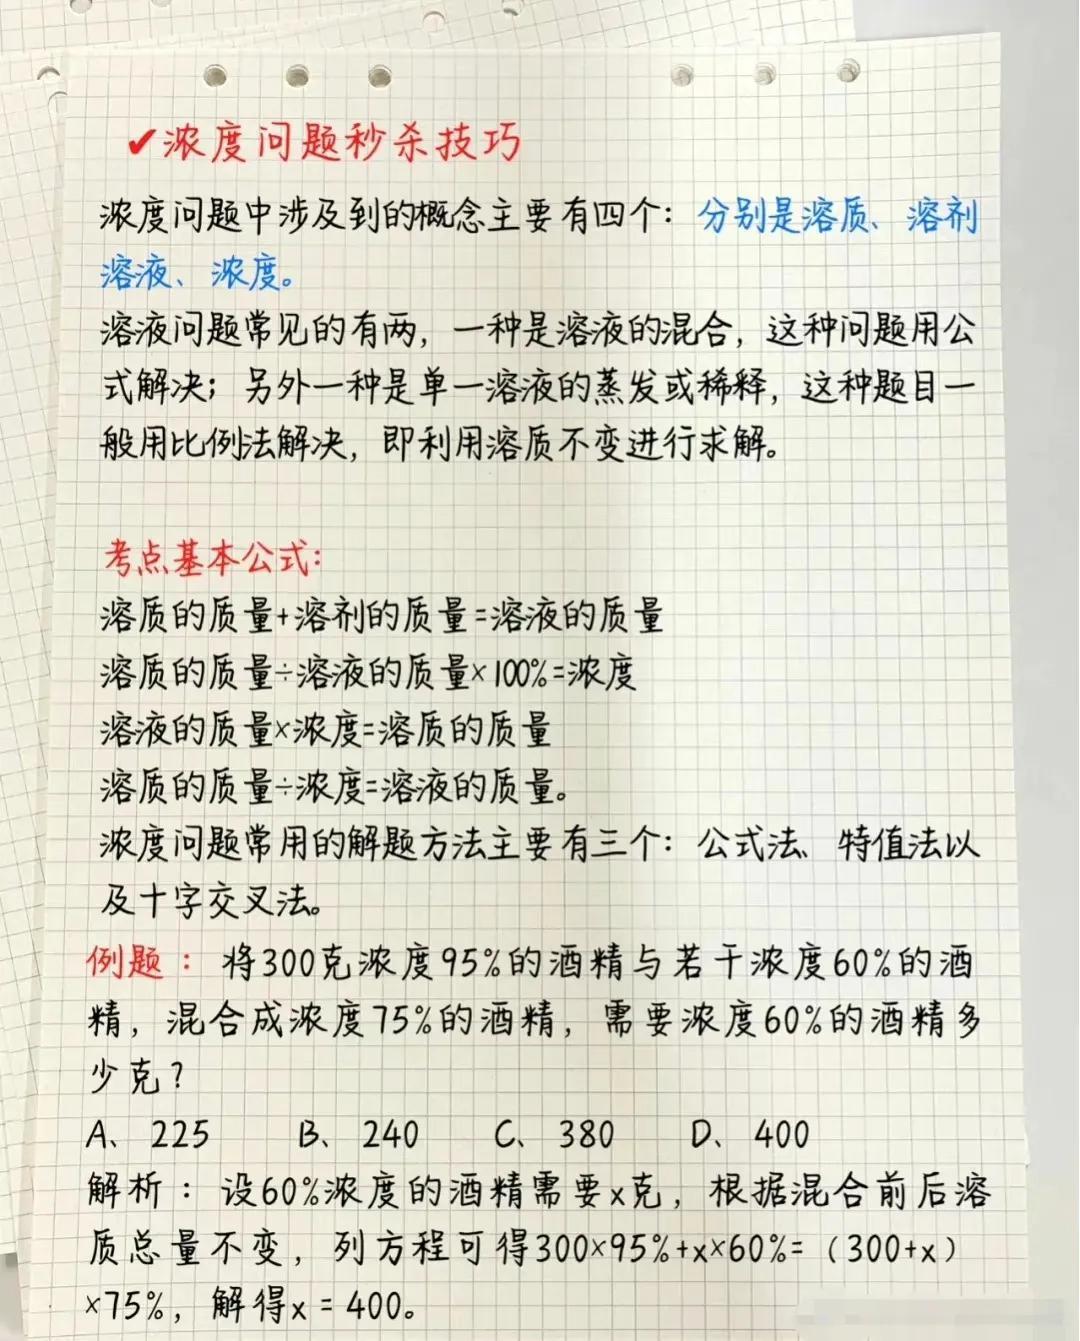 ✔浓度问题秒杀技巧
浓度问题中涉及到的概念主要有四个：分别是溶质、溶剂
溶液、浓度。
溶液问题常见的有两，一种是溶液的混合，这种问题用公
式解决；另外一种是单一溶液的蒸发或稀释，这种题目一
般用比例法解决，即利用溶质不变进行求解。
考点基本公式：
溶质的质量+溶剂的质量=溶液的质量
溶质的质量÷溶液的质量×100%=浓度
溶液的质量×浓度=溶质的质量
溶质的质量÷浓度=溶液的质量。
浓度问题常用的解题方法主要有三个：公式法、特值法以
及十字交叉法。
例题：将300克浓度95%的酒精与若干浓度60%的酒
精，混合成浓度75%的酒精，需要浓度60%的酒精多
少克？
A、225 B、240 C、380 D、400
解析：设60%浓度的酒精需要x克，根据混合前后溶
质总量不变，列方程可得300×95%+x×60%=（300+x）
×75%，解得x=400。